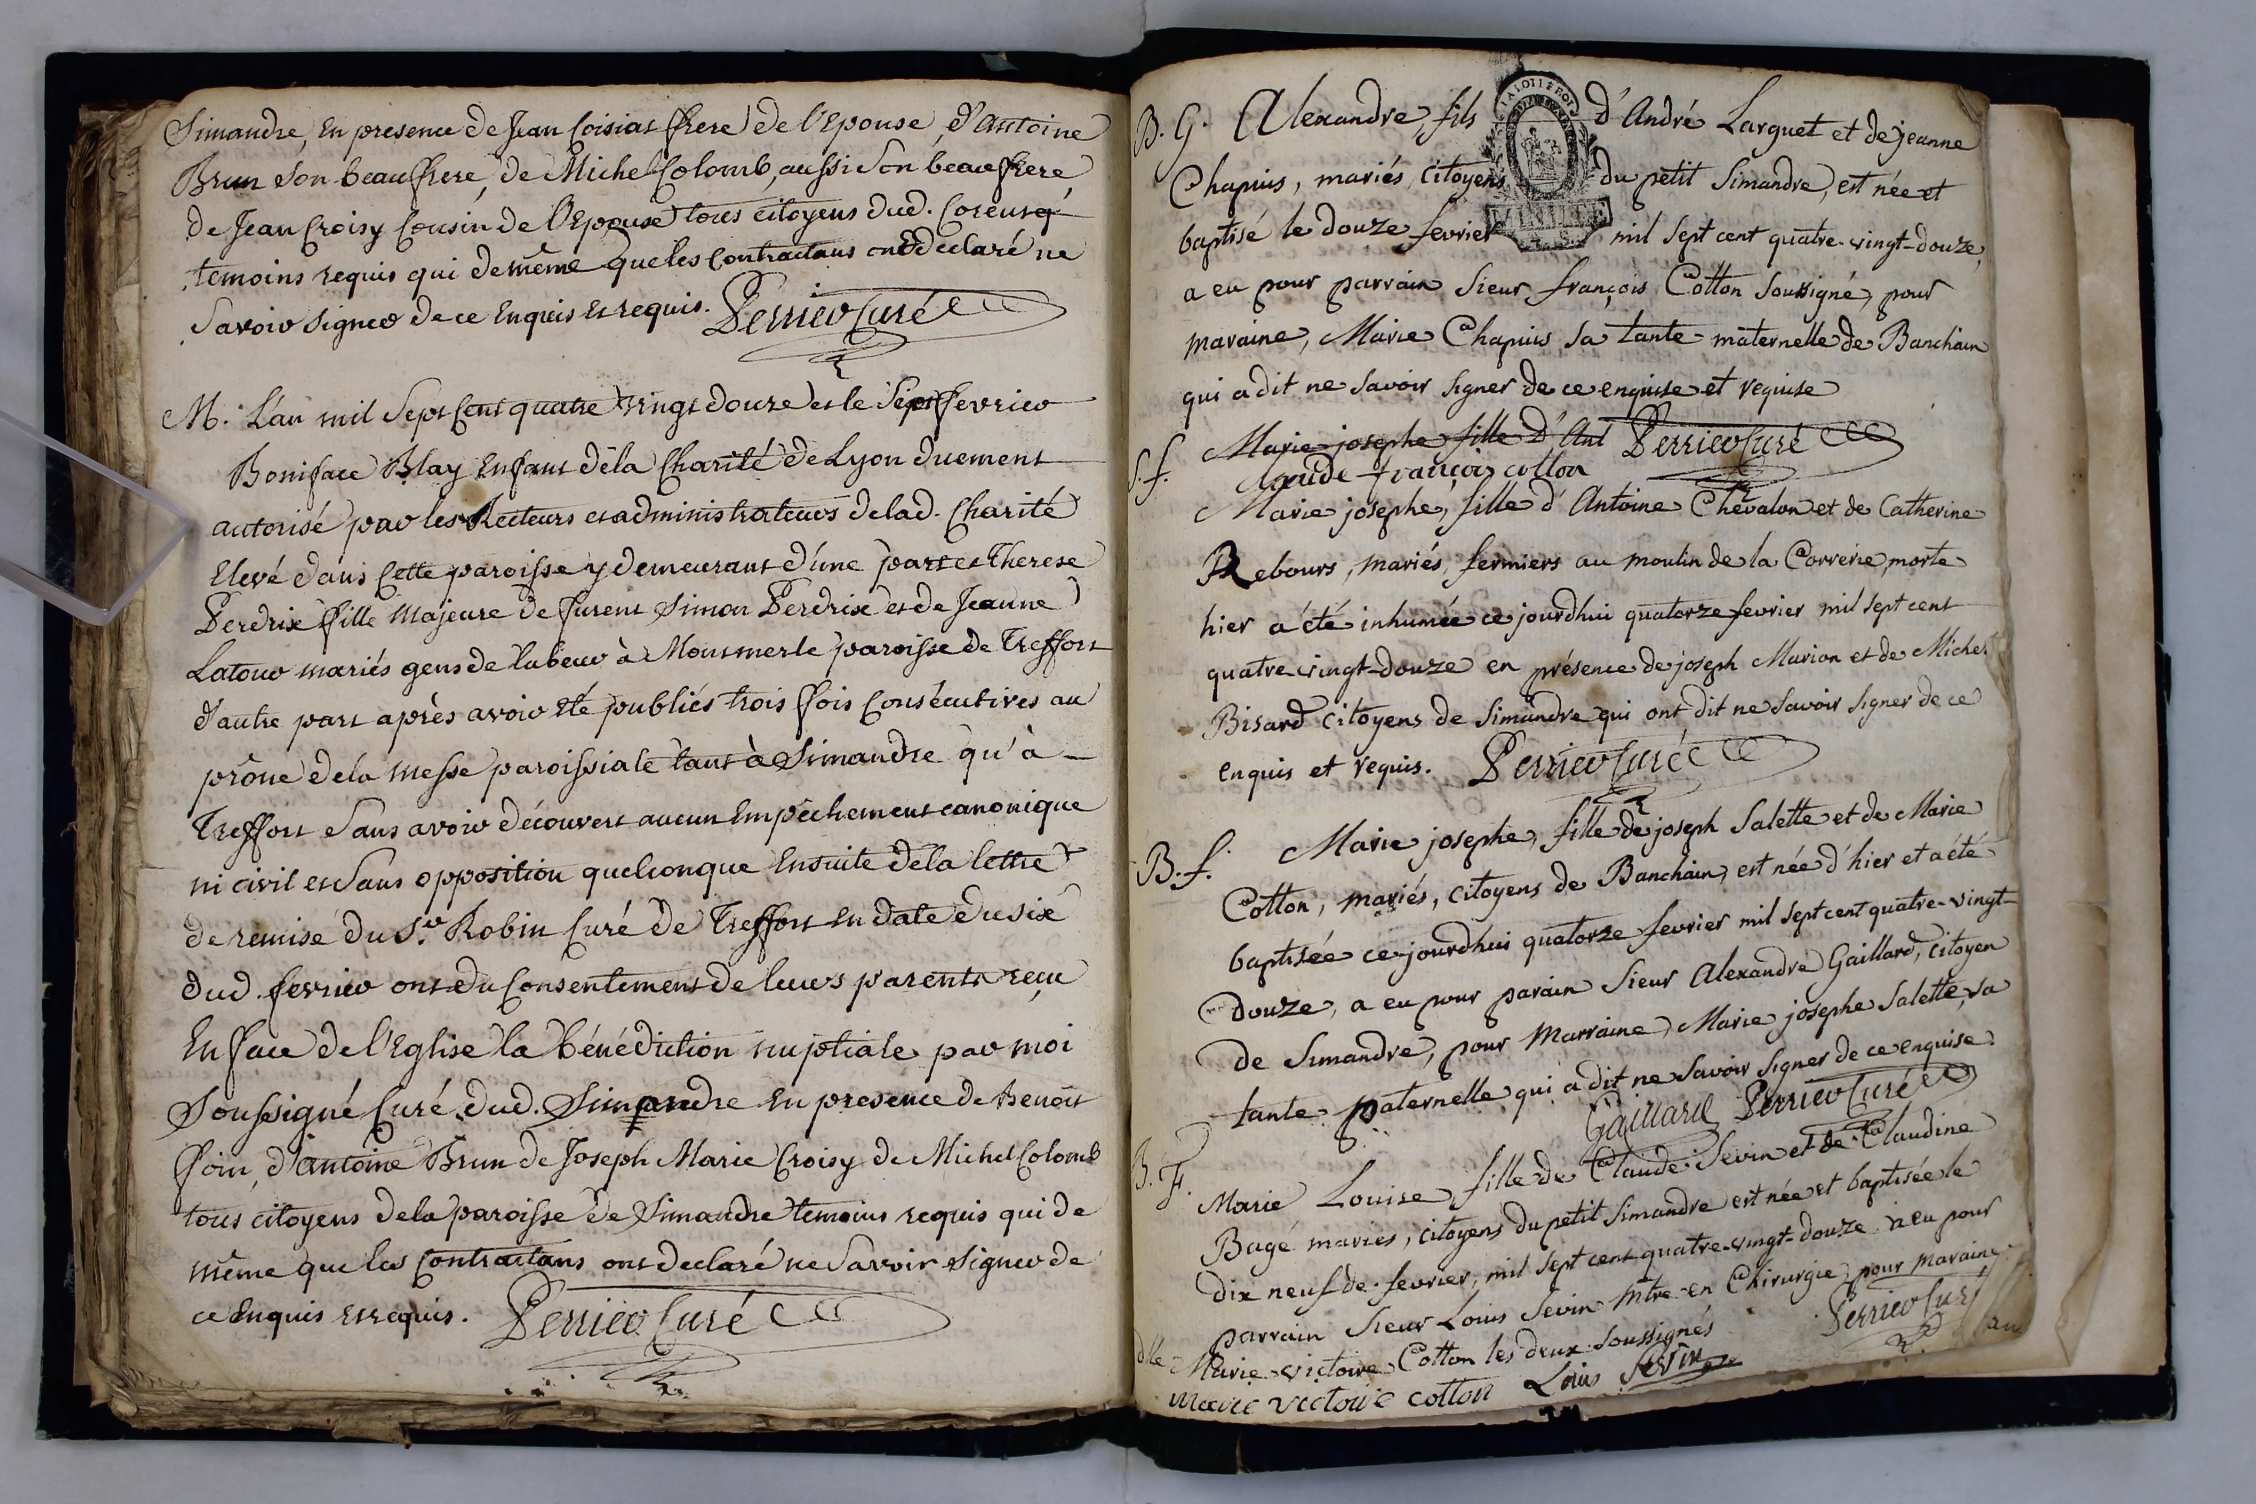 Simandre, En presence de Jean Coisiat frere de l'Epouse d'antoine
Brun son beaufrere, de Michel Colomb, aussi son beaufrere
de Jean Croisy Cousin de l'Epouse tous citoyens dud. 
temoins requis qui de même que les Contractans ont declaré ne
savoir signer de ce Enquis et requis. Perrier Curé
M. L'an mil sept cent quatre vingt douze et le sept fevrier
Boniface Blay Enfant de la Charité de Lyon duement
autorisé par les Recteurs et administrateurs de lad. Charité
Elevé dans Cette paroisse y demeurant d'une part et Therese
Perdrix fille Majeure de furent Simon Perdrix et de Jeanne
Latour mariés gens de labeur à Montmerle paroisse de Treffort
d'autre part après avoir été publiés trois fois Consécutives au
prône de la Messe paroissiale tant à Simandre qu'à
Treffort sans avoir découvert aucun Empêchement canonique
ni civil et sans opposition quelconque Ensuite de la lettre
de remise du Sr. Robin Curé de Treffort en date du six
dud. fevrier ont du Consentement de leurs parents reçu
En face de l'Eglise la bénédiction nuptiale par moi
Soussigné Curé dud. Simandre En presence de Benoit
foin, d'antoine Brun de Joseph Marie Croisy de Michel Colomb
tous citoyens de la paroisse de Simandre temoins requis qui de
même que les Contractans ont declaré ne savoir signer de
ce Enquis et requis. Perrier Curé
B. G. Alexandre, fils d'André Larguet et de jeanne
Chapuis, mariés, citoyens du petit Simandre, est née et
baptisé le douze fevrier mil sept cent quatre-vingt-douze,
a eu pour parrain Sieur françois Cotton soussigné, pour
maraine, Marie Chapuis sa tante maternelle de Banchain
qui a dit ne savoir signer de ce enquise et requise
Marie josephe fille d'Ant Perrier Curé
Claude françois cotton
S. f. Marie josephe, fille d'Antoine Chevalon et de Catherine
Rebours, mariés, fermiers au moulin de la Correrie, morte
hier a été inhumée ce jourdhui quatorze fevrier mil sept cent
quatre vingt-douze en présence de joseph Marion et de Michel
Bisard citoyens de Simandre qui ont dit ne savoir signer de ce
enquis et requis. Perrier Curé
B. f. Marie josephe, fille de joseph Salette et de Marie
Cotton, mariés, citoyens de Banchain, est née d'hier et a été
baptisée ce-jourdhui quatorze fevrier mil sept cent quatre-vingt-
douze, a eu pour parain Sieur Alexandre Gaillard, citoyen
de Simandre, pour Marraine, Marie josephe Salette, sa
tante paternelle qui a dit ne savoir signer de ce enquise.
Gaillard Perrier Curé
B. F. Marie Louise, fille de Claude Sevin et de Claudine
Bagé mariés, citoyens du petit Simandre est née et baptisée le
dix neuf de fevrier, mil sept cent quatre-vingt-douze a eu pour
parrain Sieur Louis Sevin Mtre en Chirurgie, pour Maraine
dlle Marie victoire Cotton les deux soussignés Perrier Curé
marie victoire cotton Louis Sevin